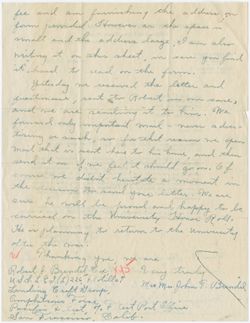 fee and am furnishing the address on
form provided. However as the space is
small and the address large, I am also
writing it on this sheet, in case you find
it hard to read on the form.
Yesterday we received the letter and
sent Robert in our care,
and we are remailing it to him. We
forward only important mail - never adver-
tising or such, so for this reason we open
most that is sent to his home, and then
send it on if we feel it should go on. Of
course we didn't hesitate a moment in
the and your letter. We
sure he will be proud and happy to be
carried on the University Honor Roll.
He is planning to return to the University
after the war.
Thanking you, we are
Robert F. Brendel Very truly,
U.S.S. L.C.I.(L) Mr. & Mrs. John F. Brendel
Landing Craft Group
Amphibious Force
Pacific Fleet, % Fleet Post Office
San Francisco, Calif.